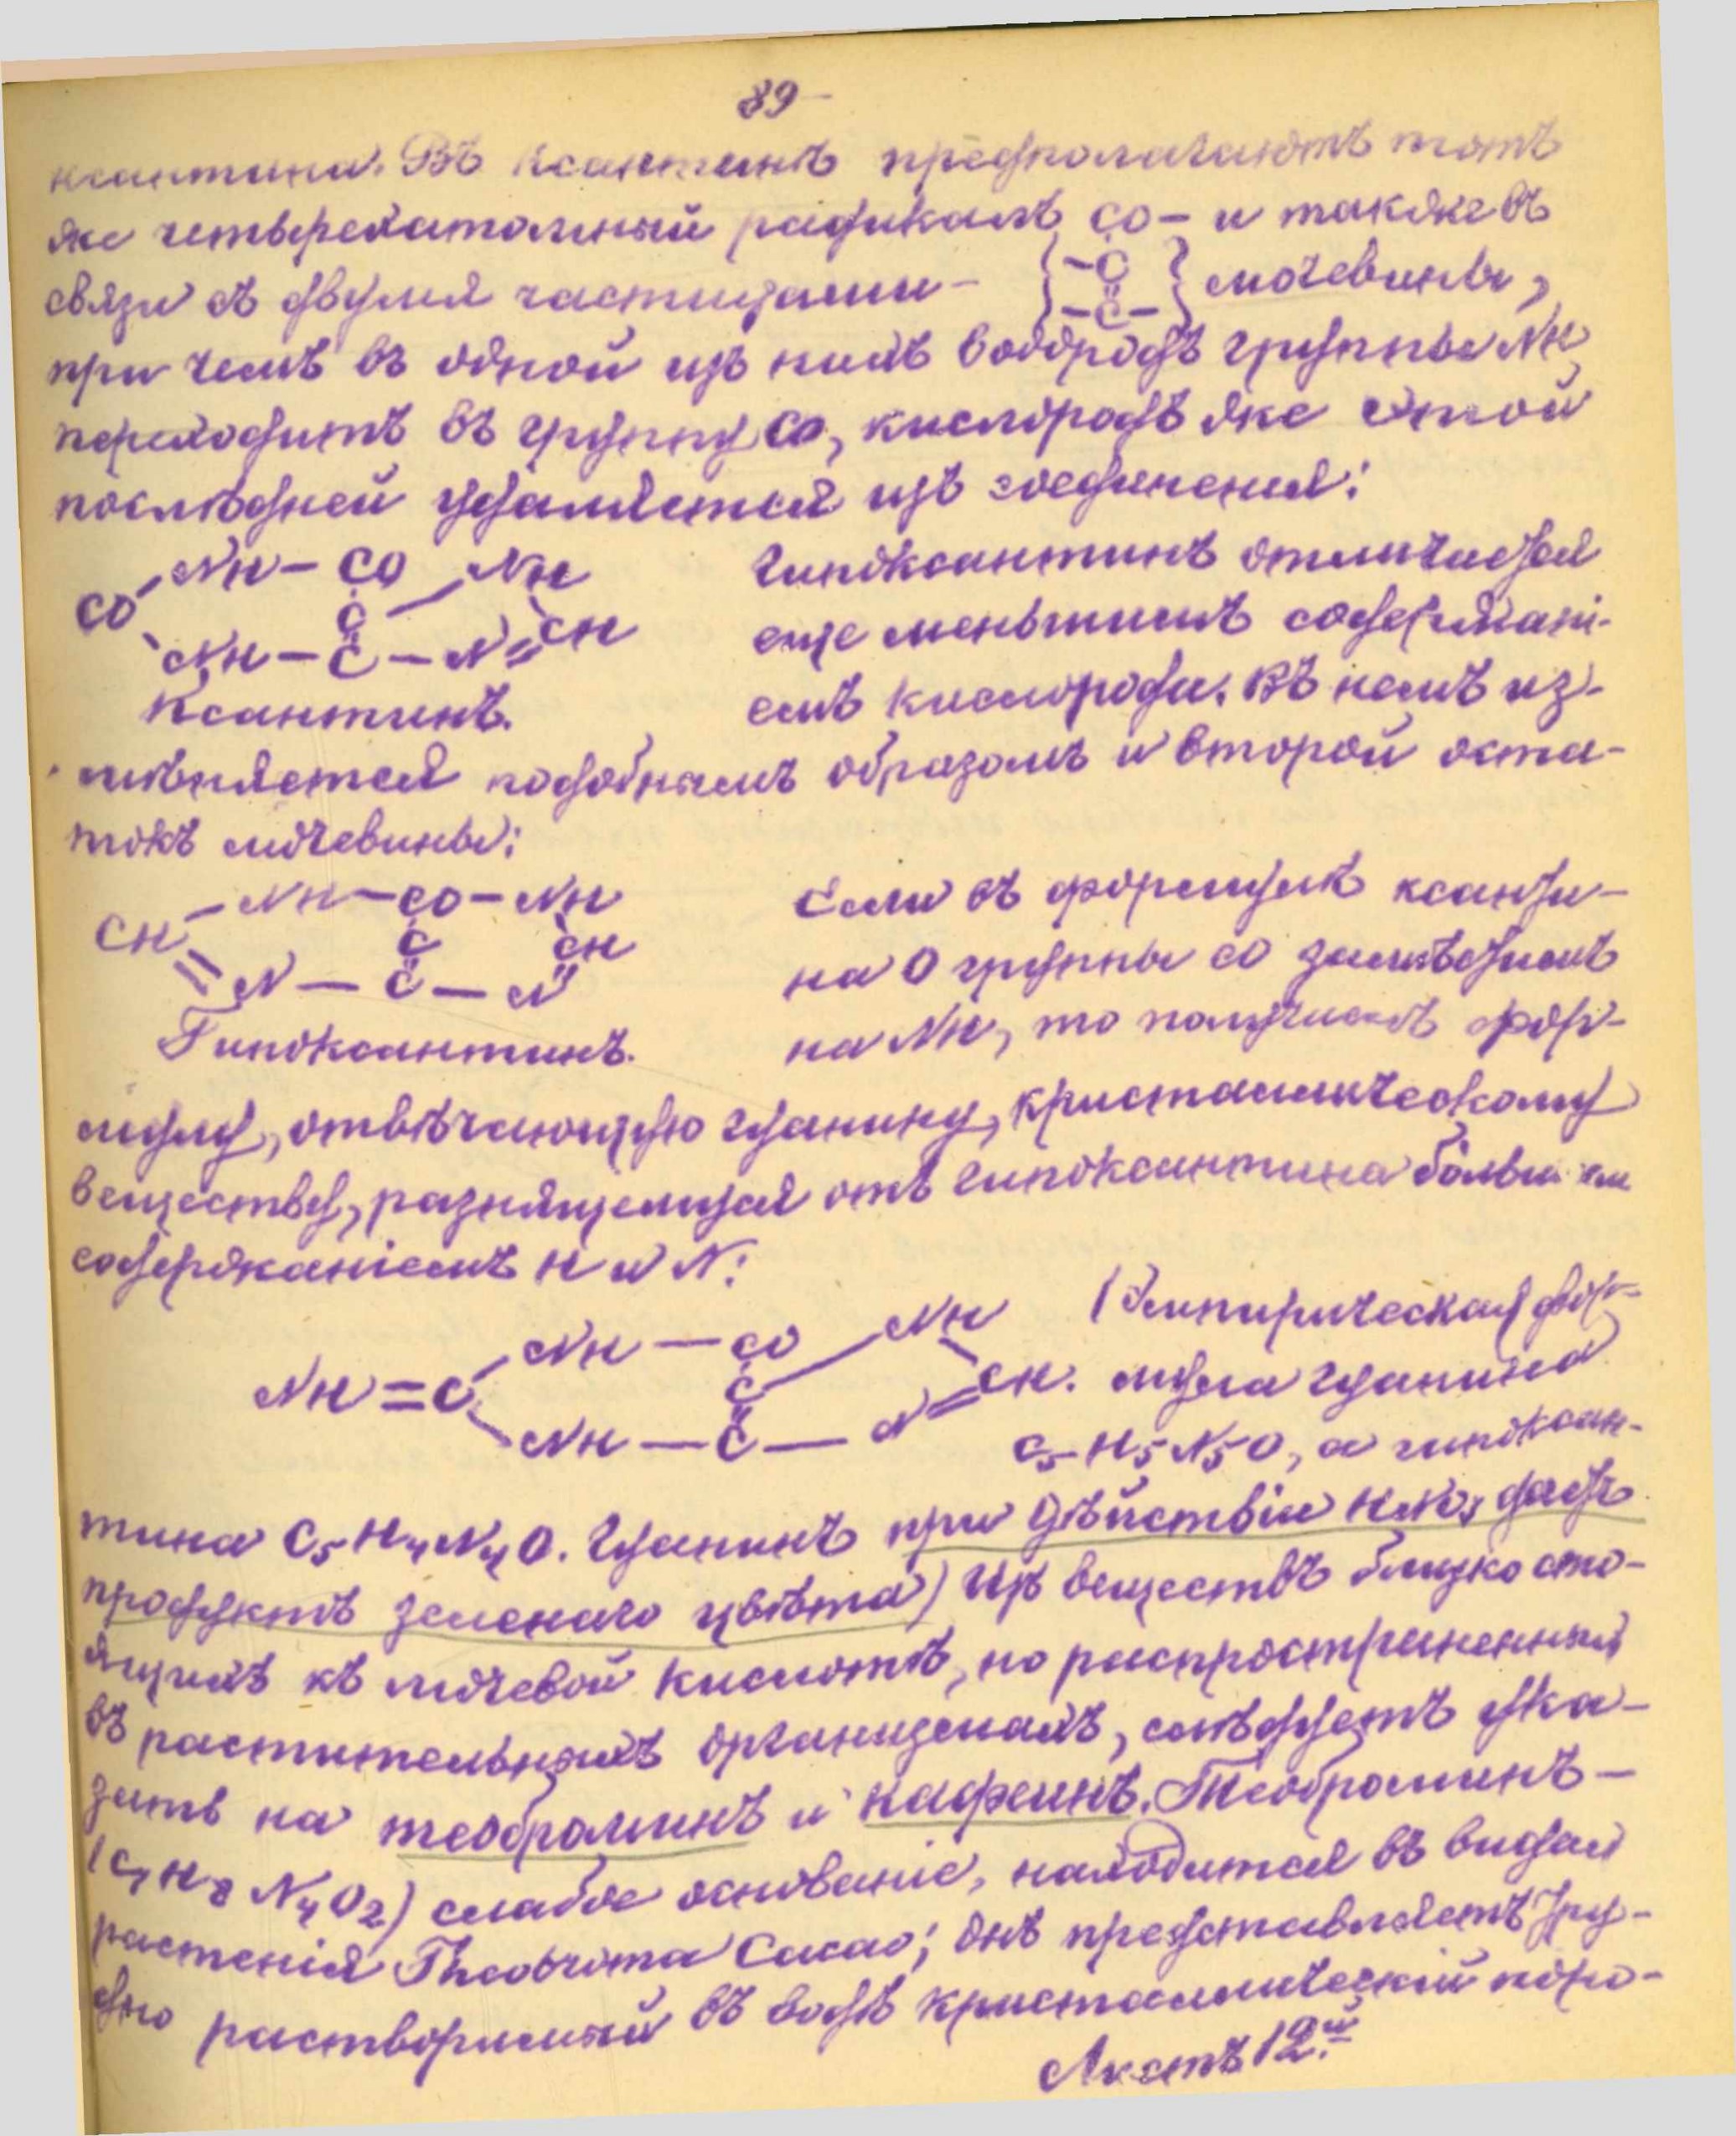 89-
ксантина. Въ ксантинѣ предполагаютъ тотъ
же четверехатомный радикалъ CO- и также въ
связи съ двумя частицами - {-C
-C-} мочевины,
при чемъ въ одной изъ нихъ водородъ группы NH
переходитъ въ группу CO, кислородъ же этой
послѣдней удаляется изъ соединенія:
NH - CO NH
CO C CH
NH - C - N
Ксантинъ.
Гипоксантинъ отличается
еще меньшимъ содержані-
емъ кислорода. Въ немъ из-
мѣняется подобнымъ образомъ и второй оста-
токъ мочевины:
NH - CO - NH
CH C CH
N - C - N
Гипоксантинъ.
Если въ формулѣ ксанти-
на O группы CO замѣстимъ
на NH, то получимъ фор-
мулу, отвѣчающую гуанину, кристаллическому
веществу, разнящемуся отъ гипоксантина большимъ
содержаніемъ H и N:
NH - CO NH
NH = C C CH.
NH - C - N
(Эмпирическая фор-
мула гуанина
C5H5N5O, а гипоксан-
тина C5H4N4O. Гуанинъ при дѣйствіи HNO3 даетъ
продуктъ зеленаго цвѣта) Изъ веществъ близко сто-
ящихъ къ мочевой кислотѣ, но распространенныхъ
въ растительныхъ организмахъ, слѣдуетъ ука-
зать на теоброминъ и кафеинъ. Теоброминъ -
(C7H8N4O2) слабое основаніе, находится въ видѣ
растенія Theobroma Cacao; онъ представляетъ тру-
дно растворимый въ водѣ кристаллическій поро-
Листъ 12й.